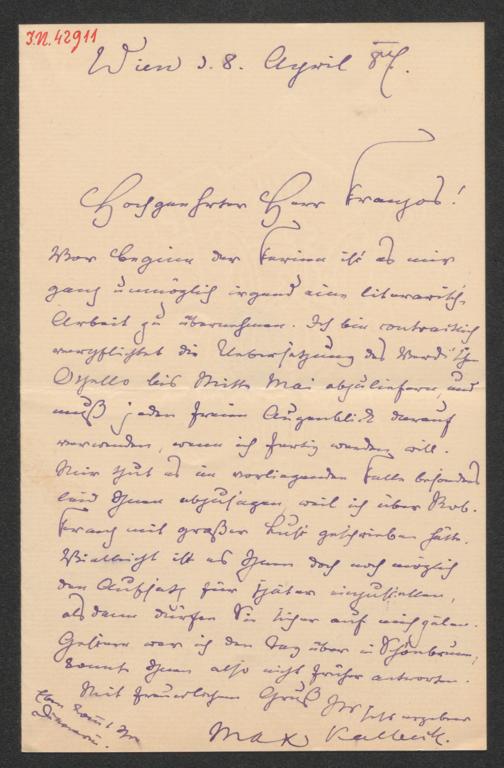 I.N. 42911
Wien d. 8. April 87.
Hochgeehrter Herr Franzos!
Vor Beginn der Ferien ist es mir
ganz unmöglich irgend eine literarische
Arbeit zu übernehmen. Ich bin contractlich
verpflichtet die Uebersetzung des Verdi'schen
Othello bis Mitte Mai abzuliefern, und
muß jeden freien Augenblick darauf
verwenden, wenn ich fertig werden will.
Mir thut es im vorliegenden Falle besonders
leid Ihnen abzusagen, weil ich über Rob.
Franz mit großer Lust geschrieben hätte.
Vielleicht ist es Ihnen doch noch möglich
den Aufsatz für später einzustellen,
alsdann dürfen Sie sicher auf mich zälen.
Gestern war ich den Tag über in Schönbrunn,
konnte Ihnen also nicht früher antworten.
Mit freundlichem Gruß
Ihr sehr ergebener
Max Kalbeck.